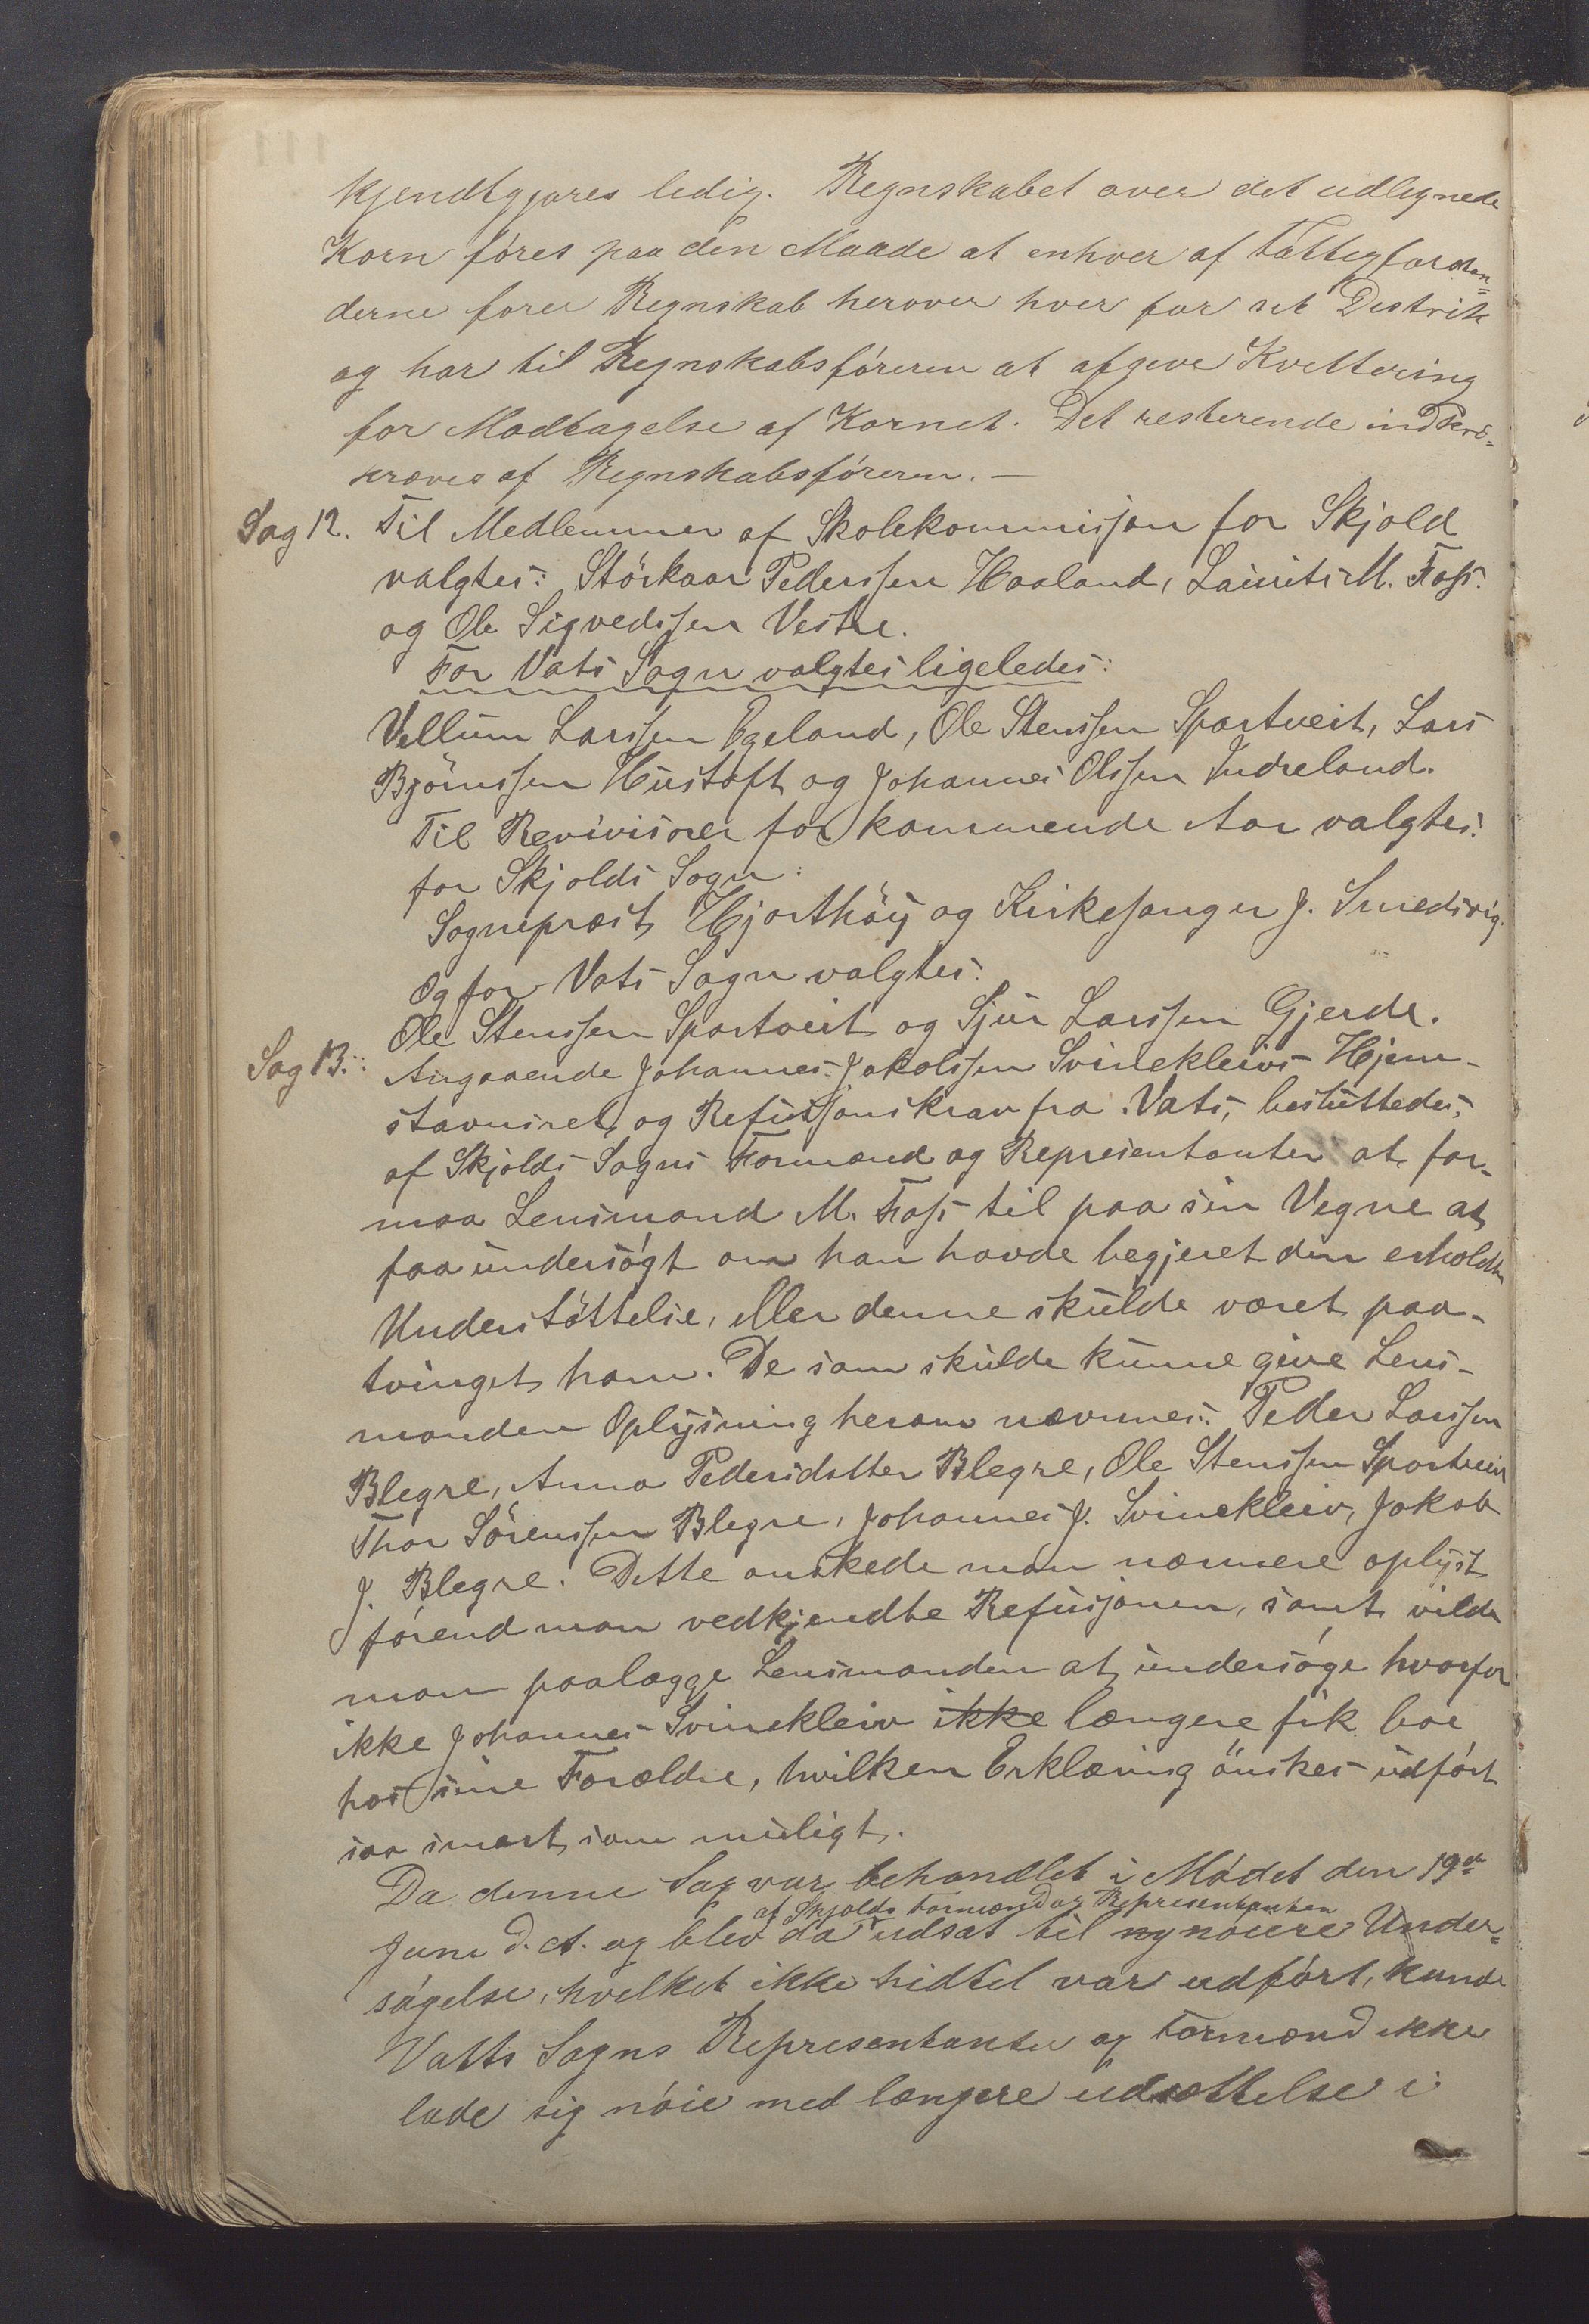 kjendtgjøres ledig. Regnskabet over det udlignede
Korn føres paa den Maade at enhver af Fattigforstan=
derne fører Regnskab herover hver for sit Distrik
og har til Regnskabsføreren at afgive Kvittering
for Modtagelse af Kornet. Det resterende indkræ=
kræves af Regnskabsføreren. —
Sag 12. Til Medlemmer af Skolekommissjon for Skjold
valgtes: Störkaar Pederssen Haaland, Laurits M. Foss.
og Ole Sigvedssen Vestre.
For Vats Sogn valgtes ligeledes:
Vellum Larssen Egeland, Ole Stenssen Sportveit, Lars
Bjørnssen Hustoft og Johannes Olssen Indreland.
Til Revivisorer for kommende Aar valgtes:
for Skjolds Sogn:
Sogneprest Hjorthöÿ og Kirkesanger J. Smedsvig.
Og for Vats Sogn valgtes:
Ole Stenssen Sportveit og Sjur Larssen Gjerde.
Sag 13.: Angaaende Johannes Jakobssen Svinekleivs Hjem-
stavnsret og Refusjonskrav fra Vats, besluttedes,
af Skjolds Sogns Formænd og Representanter at for-
maa Lensmand M. Foss til paa sin Vegne at
faa undersøgt om han havde begjeret den erholdte
Understöttelse, eller denne skulde været paa-
tvinget ham. De som skulde kunne give Lens-
manden Oplysning herom nævnes: Peder Larssen
Blegre, Anna Pedersdatter Blegre, Ole Stenssen Sportveit
Thor Sörenssen Blegre, Johannes J. Svinekleiv, Jakob
J. Blegre. Dette ønskede man nærmere oplyst
førend man vedkjendte Refusjonen, samt vilde
man paalægge Lensmanden at undersøge hvorfor
ikke Johannes Svinekleiv ikke længere fik boe
hos sine Forældre, hvilken Erklæring önskes udført
saa snart som muligt.
Da denne Sag var behandlet i Mødet den 19de
af Skjolds Formænd og Representanter
Juni d. A. og blev da udsat til ny nøiere Under=
søgelse, hvilket ikke hidtil var udført, kunde
Vatts Sogns Representanter og Formænd ikke
lade sig nøie med længere udsættelse i